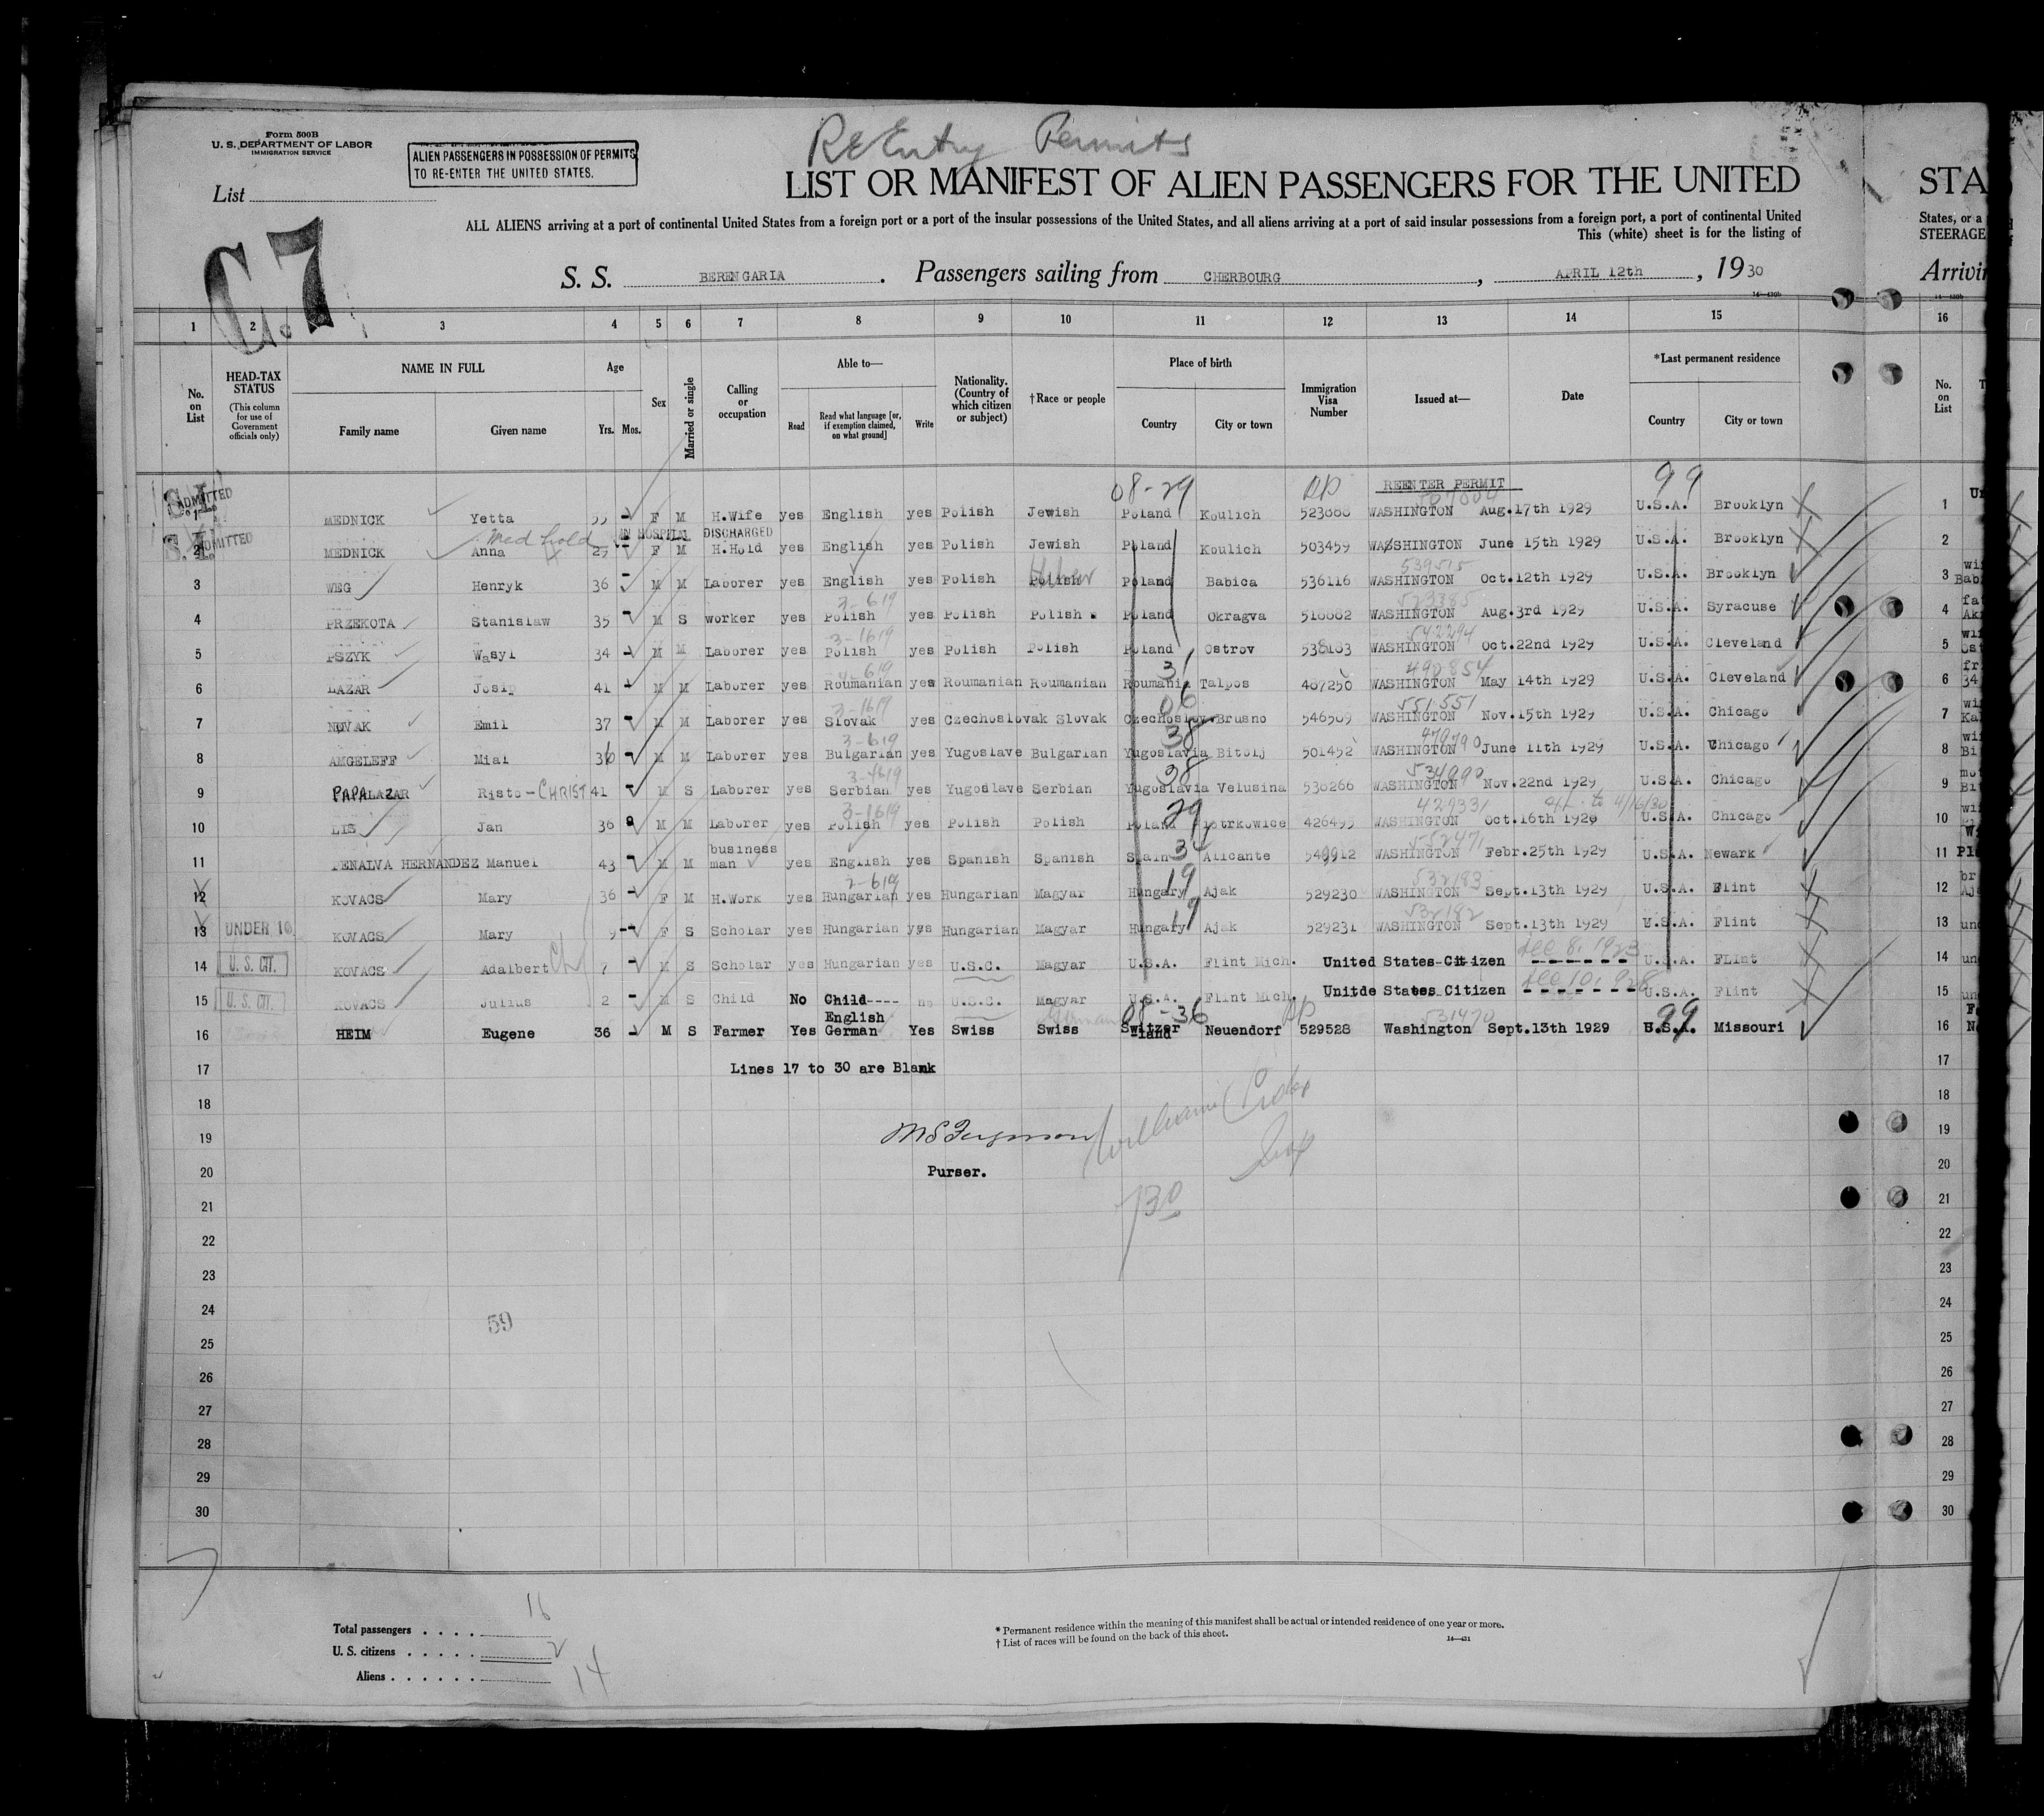 Form 500B
U. S. DEPARTMENT OF LABOR
IMMIGRATION SERVICE
ALIEN PASSENGERS IN POSSESSION OF PERMITS
TO RE-ENTER THE UNITED STATES.
ReEntry Permits
List
C.7
LIST OR MANIFEST OF ALIEN PASSENGERS FOR THE UNITED STA
ALL ALIENS arriving at a port of continental United States from a foreign port or a port of the insular possessions of the United States, and all aliens arriving at a port of said insular possessions from a foreign port, a port of continental United States, or a
This (white) sheet is for the listing of STEERAGE
S. S. BERENGARIA . Passengers sailing from CHERBOURG , APRIL 12th , 19 30 Arrivin
14—430b
1 2 3 4 5 6 7 8 9 10 11 12 13 14 15 16
No. on List
HEAD-TAX STATUS
(This column for use of Government officials only)
NAME IN FULL
Family name Given name
Age
Yrs. Mos.
Sex
Married or single
Calling or occupation
Able to—
Read Read what language [or, if exemption claimed, on what ground] Write
Nationality. (Country of which citizen or subject)
†Race or people
Place of birth
Country City or town
Immigration Visa Number
Issued at—
Date
*Last permanent residence
Country City or town
No. on List
08-29 RP REENTER PERMIT 99
ADMITTED 1 MEDNICK Yetta F M H.Wife yes English yes Polish Jewish Poland Koulich WASHINGTON Aug.17th 1929 U.S.A. Brooklyn 1
Med hold IN HOSPITAL DISCHARGED
ADMITTED 2 MEDNICK Anna F M H.Hold yes English yes Polish Jewish Poland Koulich 503459 WASHINGTON June 15th 1929 U.S.A. Brooklyn 2
539515
3 WEG Henryk 36 M M Laborer yes English yes Polish Polish Hebrew Poland Babica 536116 WASHINGTON Oct.12th 1929 U.S.A. Brooklyn 3
3-619 523385
4 PRZEKOTA Stanislaw 35 M S worker yes Polish yes Polish Polish Poland Okragva WASHINGTON Aug.3rd 1929 U.S.A. Syracuse 4
3-1619 542294
5 PSZYK Wasyl 34 M M Laborer yes Polish yes Polish Polish Poland Ostrov WASHINGTON Oct.22nd 1929 U.S.A. Cleveland 5
492854
6 LAZAR Josip 41 M M Laborer yes Roumanian yes Roumanian Roumanian Roumania Talpos WASHINGTON May 14th 1929 U.S.A. Cleveland 6
3-1619 06 551551
7 NOVAK Emil 37 M M Laborer yes Slovak yes Czechoslovak Slovak Czechoslov. Brusno 546509 WASHINGTON Nov.15th 1929 U.S.A. Chicago 7
3-619 38 470790
8 AMGELEFF Mial 36 M M Laborer yes Bulgarian yes Yugoslave Bulgarian Yugoslavia Bitolj 501452 WASHINGTON June 11th 1929 U.S.A. Chicago 8
38 534990
9 PAPALAZAR Risto-CHRIST 41 M S Laborer yes Serbian yes Yugoslave Serbian Yugoslavia Velusina WASHINGTON Nov.22nd 1929 U.S.A. Chicago 9
3-1619 29 429331 to 4/16/30
10 LIS Jan 36 M M Laborer yes Polish yes Polish Polish Poland Piotrkowice 426495 WASHINGTON Oct.16th 1929 U.S.A. Chicago 10
business 552471
11 PENALVA HERNANDEZ Manuel 43 M M man yes English yes Spanish Spanish Spain Alicante 549912 WASHINGTON Febr.25th 1929 U.S.A. Newark 11
2-619 19 532183
12 KOVACS Mary 36 F M H.Work yes Hungarian yes Hungarian Magyar Hungary Ajak 529230 WASHINGTON Sept.13th 1929 U.S.A. Flint 12
19 532182
13 UNDER 16 KOVACS Mary 9 F S Scholar yes Hungarian yes Hungarian Magyar Hungary Ajak 529231 WASHINGTON Sept.13th 1929 U.S.A. Flint 13
Dec 8, 1923
14 U. S. CIT. KOVACS Adalbert 7 M S Scholar yes Hungarian yes U.S.C. Magyar U.S.A. Flint Mich. United States Citizen U.S.A. FLint 14
Dec 10, 1928
15 U. S. CIT. KOVACS Julius 2 M S Child No Child---- no U.S.C. Magyar U.S.A. Flint Mich. Unitde States Citizen U.S.A. Flint 15
English German 08-36 RP 531470 99
16 HEIM Eugene 36 M S Farmer Yes German Yes Swiss Swiss Switzer-land Neuendorf 529528 Washington Sept.13th 1929 U.S.A. Missouri 16
17 Lines 17 to 30 are Blank 17
18 18
19 M S Ferguson William 19
20 Purser. Insp 20
21 730 21
22 22
23 23
24 59 24
25 25
26 26
27 27
28 28
29 29
30 30
Total passengers . . . . 16
U. S. citizens . . . . . 2
Aliens . . . . . . 14
* Permanent residence within the meaning of this manifest shall be actual or intended residence of one year or more.
† List of races will be found on the back of this sheet.
14—431